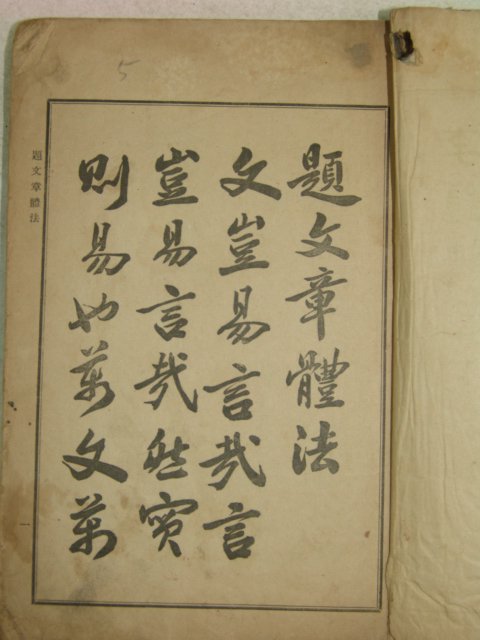 題文章體法
文豈易言哉言
豈易言哉然實
則易也萬文萬
題文章體法
一
5